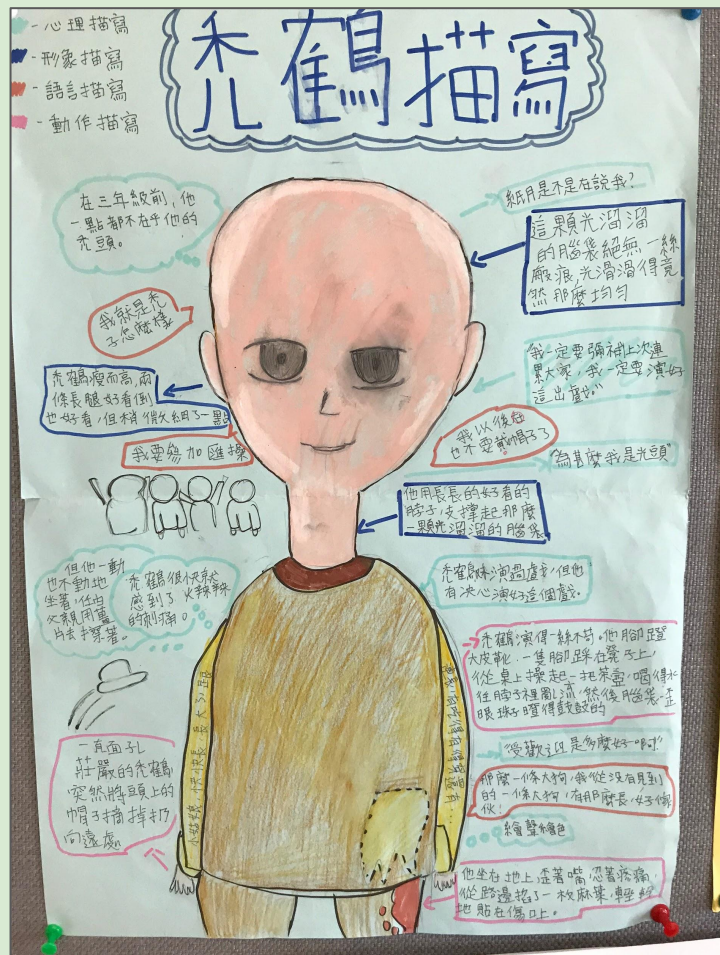 心理描寫
形象描寫
語言描寫
動作描寫
禿鶴描寫
在三年級前，他
一點都不在乎他的
禿頭。
紙月是不是在說我？
這顆光溜溜
的腦袋絕無一絲
瘢痕，光滑滑得竟
然那麼均勻
我就是禿
子怎麼樣
禿鶴瘦而高，兩
條長腿好看倒
也好看，但稍微細了一點
我一定要彌補上次連
累大家，我一定要演好
這出戲。"
我要參加匯操
我以後再
也不要戴帽子了
"為甚麼我是光頭"
他用長長的好看的
脖子，支撐起那麼
一顆光溜溜的腦袋
但他一動
也不動地
坐著，任由
父親用薑
片去擦著。
禿鶴很快就
感到了火辣辣
的刺痛。
禿鶴未演過戲，但他
有決心演好這個戲。
禿鶴演得一絲不苟。他腳蹬
大皮靴，一隻腳踩在凳子上，
從桌上操起一把茶壺，喝得水
往脖子裡亂流，然後腦袋一歪
眼珠子瞪得鼓鼓的
小姑娘，快快長，長大了
一直面孔
莊嚴的禿鶴
突然將頭上的
帽子摘掉扔
向遠處。
"受歡迎是多麼好啊！"
那麼一條大狗，我從沒有見到
的一條大狗，有那麼長，好傢
伙！
繪聲繪色
他坐在地上，歪著嘴，忍著疼痛，
從路邊掐了一枚麻葉，輕輕
地貼在傷口上。